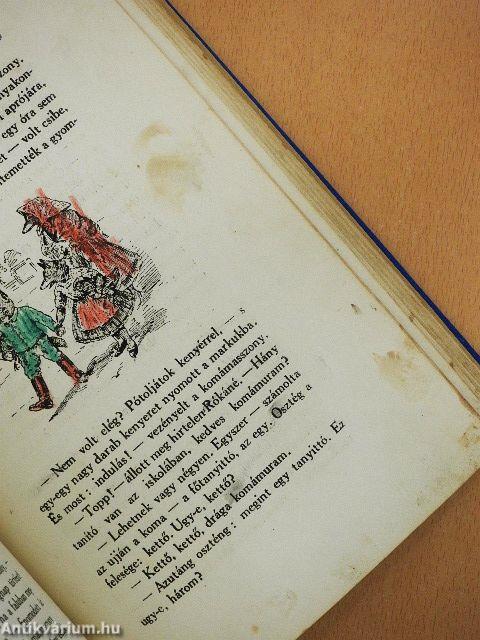 szony.
nyakon-
apróját,
egy óra sem
volt csibe,
temették a gyom-
— Nem volt elég? Pótoljátok kenyérrel, — s
egy-egy nagy darab kenyeret nyomott a markukba.
És most: indulás! — vezényelt a komámasszony.
— Topp! — állott meg hirtelen Rókáné. — Hány
tanító van az iskolában, kedves komámuram?
— Lehetnek vagy négyen. Egyszer — számolta
az ujján a koma — a főtanyittó, az egy. Osztég a
felesége: kettő. Ugy-e, kettő?
— Kettő, kettő, drága komámuram.
— Azután oszténg: megint egy tanyittó. Ez
ugy-e, három?
Antikvárium.hu